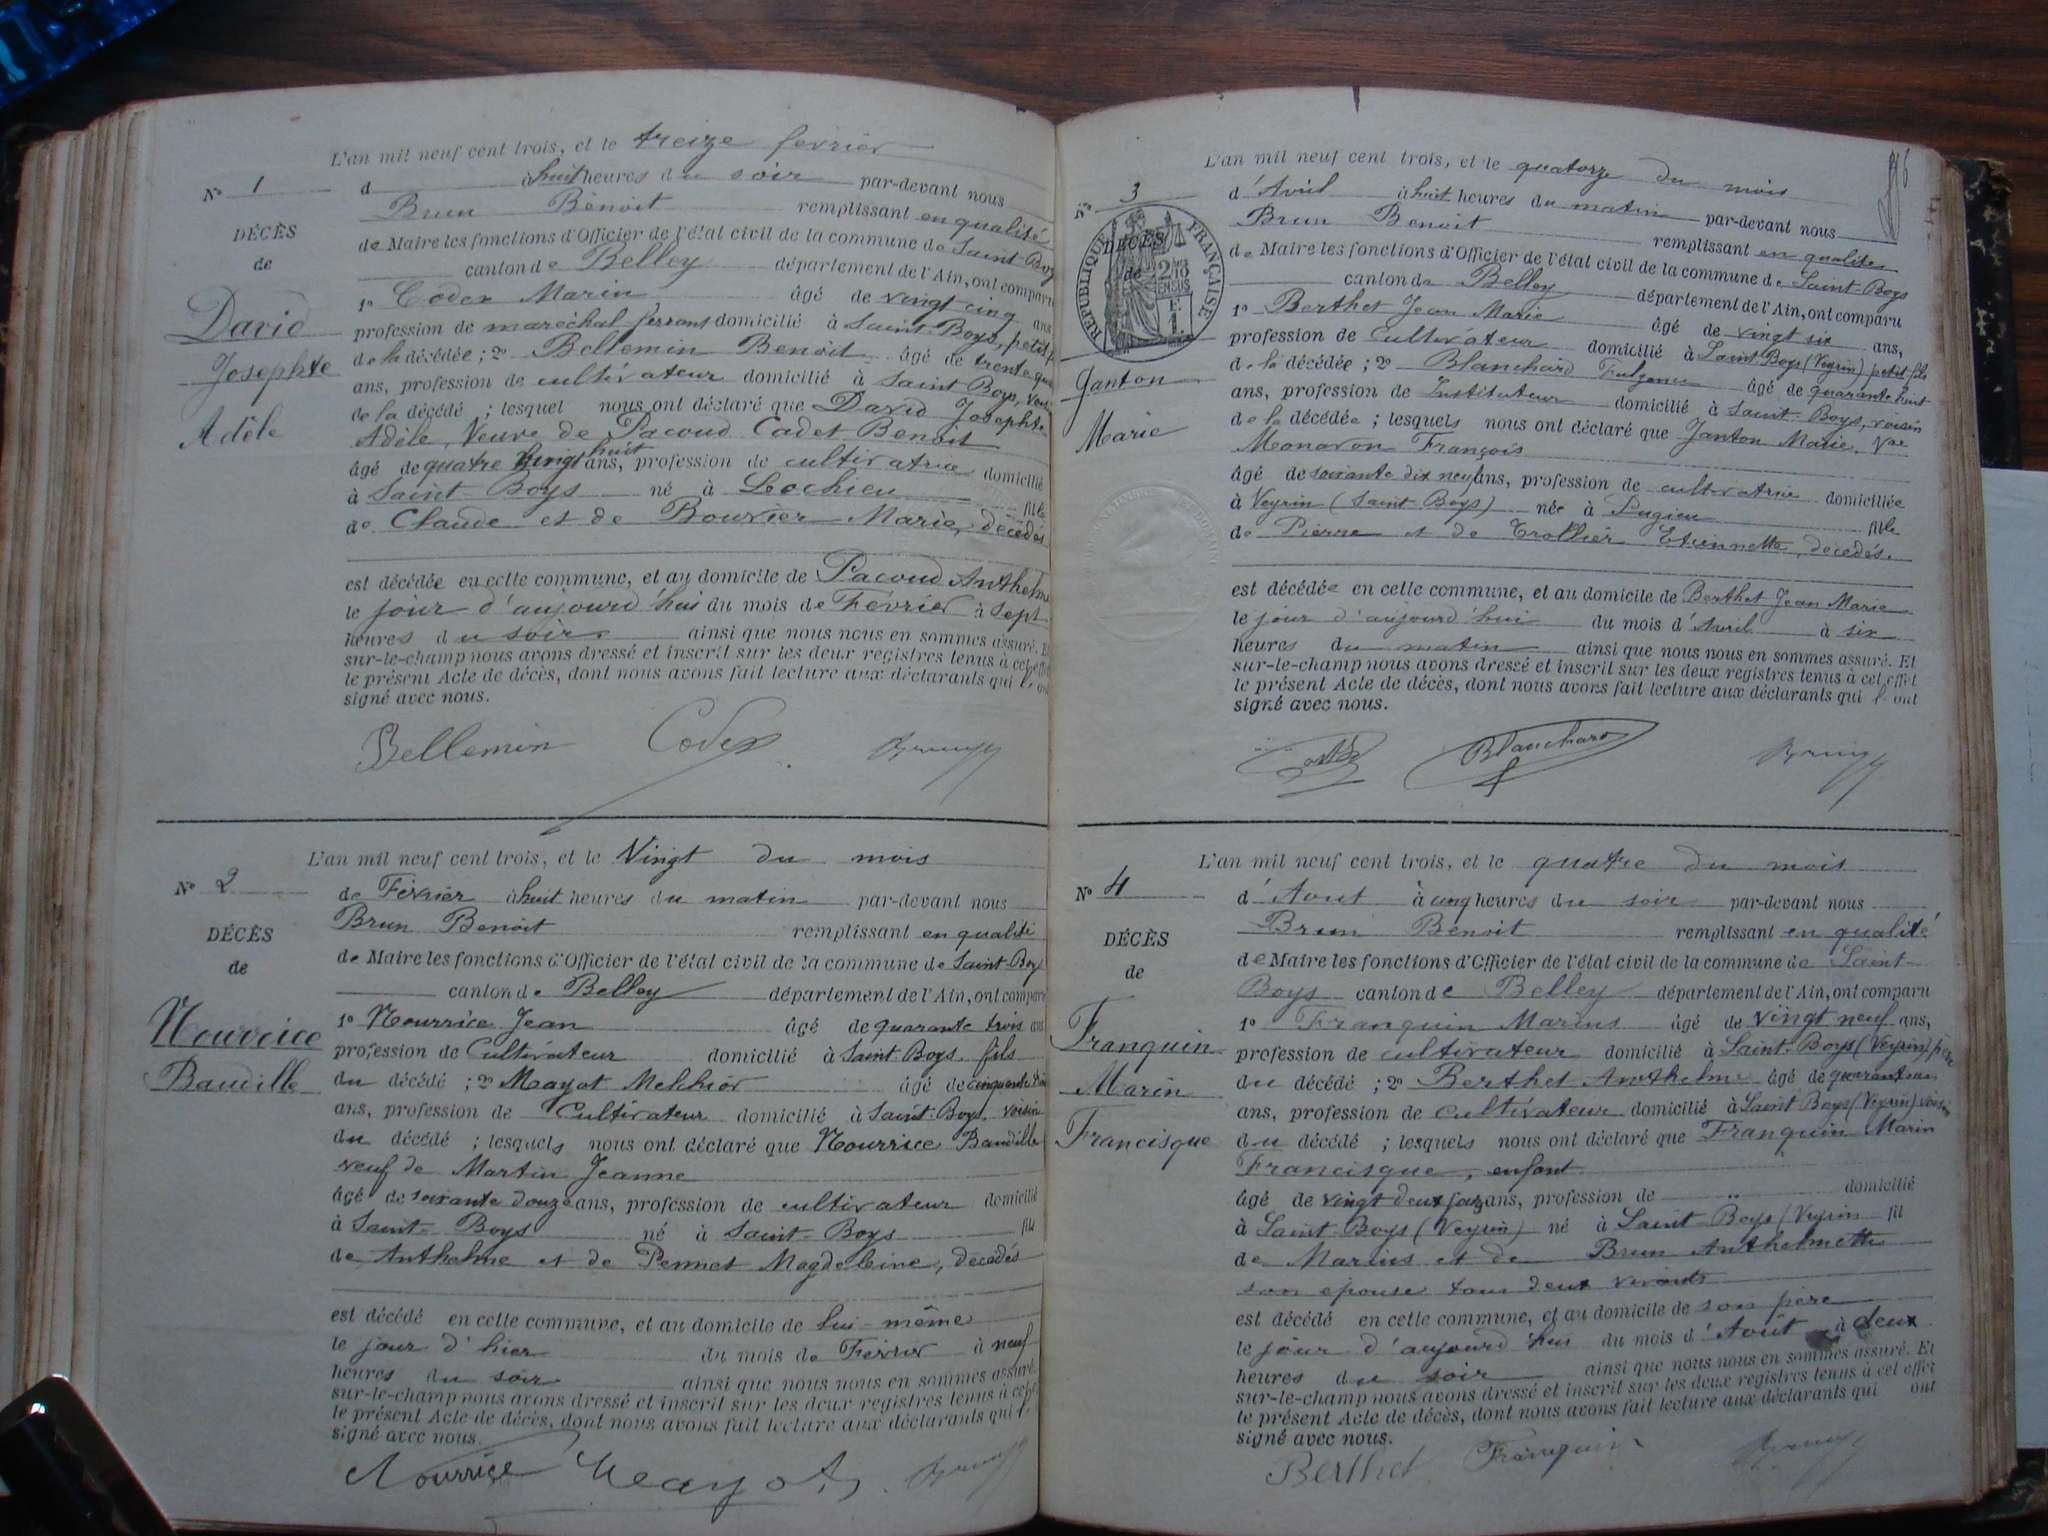 L'an mil neuf cent trois, et le treize février
N° 1
d à huit heures du soir par-devant nous
Brun Benoit remplissant en qualité
DÉCÈS
de Maire les fonctions d'Officier de l'état civil de la commune de Saint-Boy
de
canton de Belley département de l'Ain, ont comparu
1° Coder Marin âgé de vingt cinq ans
David
profession de maréchal ferrant domicilié à Saint-Boys, petit
Josephte
de la décédée ; 2° Bellemin Benoit âgé de trente
ans, profession de cultivateur domicilié à Saint Boys,
Adèle
de la décédé ; lesquel nous ont déclaré que David Josephte
Adèle, Veuve de Pacoud Cadet Benoit
âgé de quatre vingt huit ans, profession de cultivatrice domicilié
à Saint-Boys né à Lochieu fille
de Claude et de Bouvier Marie, décédés
est décédée en cette commune, et au domicile de Pacoud Anthelme
le jour d'aujourd'hui du mois de Février à sept
heures du soir ainsi que nous nous en sommes assuré. Et
sur-le-champ nous avons dressé et inscrit sur les deux registres tenus à cet effet
le présent Acte de décès, dont nous avons fait lecture aux déclarants qui l'ont
signé avec nous.
Bellemin Coder Brun
L'an mil neuf cent trois, et le Vingt du mois
N° 2
de Février à huit heures du matin par-devant nous
Brun Benoit remplissant en qualité
DÉCÈS
de Maire les fonctions d'Officier de l'état civil de la commune de Saint-Boy
de
canton de Belley département de l'Ain, ont comparu
Nourrice
1° Nourrice Jean âgé de quarante trois ans
profession de Cultivateur domicilié à Saint Boys fils
Baudille
du décédé ; 2° Mayot Melchior âgé de cinquante
ans, profession de Cultivateur domicilié à Saint-Boys voisin
du décédé ; lesquels nous ont déclaré que Nourrice Baudille
veuf de Martin Jeanne
âgé de soixante douze ans, profession de cultivateur domicilié
à Saint-Boys né à Saint-Boys fils
de Anthelme et de Pennet Magdeleine, décédés
est décédé en cette commune, et au domicile de lui-même
le jour d'hier du mois de Février à neuf
heures du soir ainsi que nous nous en sommes assuré.
sur-le-champ nous avons dressé et inscrit sur les deux registres tenus à cet
le présent Acte de décès, dont nous avons fait lecture aux déclarants qui l'
signé avec nous.
Nourrice Mayot Brun
L'an mil neuf cent trois, et le quatorze du mois
N° 3
d'Avril à huit heures du matin par-devant nous
Brun Benoit remplissant en qualité
RÉPUBLIQUE FRANÇAISE
DÉCÈS
de
de Maire les fonctions d'Officier de l'état civil de la commune de Saint-Boys
canton de Belley département de l'Ain, ont comparu
1° Berthet Jean Marie âgé de vingt six ans,
profession de Cultivateur domicilié à Saint Boys (Veyrin) petit fils
Janton
de la décédée ; 2° Blanchard Fulgence âgé de quarante huit
ans, profession de Instituteur domicilié à Saint-Boys, voisin
Marie
de la décédée ; lesquels nous ont déclaré que Janton Marie, Vve
Monavon François
âgé de soixante dix neuf ans, profession de cultivatrice domiciliée
à Veyrin (Saint-Boys) née à Pugieu fille
de Pierre et de Trollier Etiennette, décédés.
est décédée en cette commune, et au domicile de Berthet Jean Marie
le jour d'aujourd'hui du mois d'Avril à six
heures du matin ainsi que nous nous en sommes assuré. Et
sur-le-champ nous avons dressé et inscrit sur les deux registres tenus à cet effet
le présent Acte de décès, dont nous avons fait lecture aux déclarants qui l'ont
signé avec nous.
Blanchard Brun
L'an mil neuf cent trois, et le quatre du mois
N° 4
d'Aout à cinq heures du soir par-devant nous
Brun Benoit remplissant en qualité
DÉCÈS
de Maire les fonctions d'Officier de l'état civil de la commune de Saint-
de
Boys canton de Belley département de l'Ain, ont comparu
Franquin
1° Franquin Marius âgé de vingt neuf ans,
profession de cultivateur domicilié à Saint-Boys (Veyrin) père
Marin
du décédé ; 2° Berthet Anthelme âgé de quarante
ans, profession de cultivateur domicilié à Saint Boys (Veyrin) voisin
Francisque
du décédé ; lesquels nous ont déclaré que Franquin Marin
Francisque, enfant
âgé de vingt deux jours ans, profession de domicilié
à Saint-Boys (Veyrin) né à Saint-Boys (Veyrin fil
de Marius et de Brun Anthelmette
son épouse tous deux vivants
est décédé en cette commune, et au domicile de son père
le jour d'aujourd'hui du mois d'Août à deux
heures du soir ainsi que nous nous en sommes assuré. Et
sur-le-champ nous avons dressé et inscrit sur les deux registres tenus à cet effet
le présent Acte de décès, dont nous avons fait lecture aux déclarants qui ont
signé avec nous.
Berthet Franquin Brun